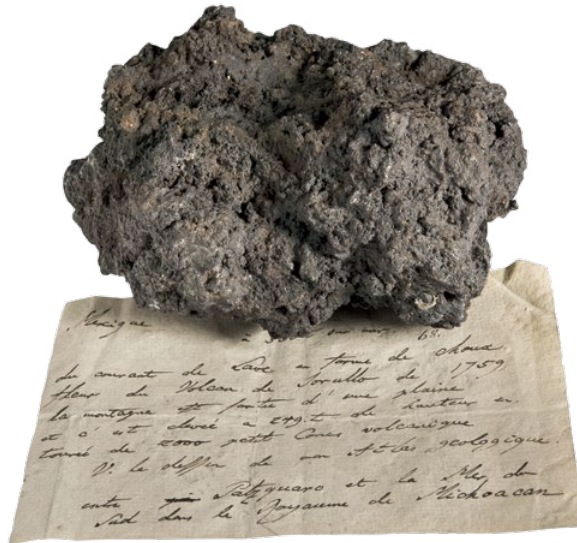 Mexique
sur mer 68.
du courant de Lave en forme de choux
fleur du Volcan de Jorullo de 1759
la montagne est sortie d'une plaine
et c'est élevée a de hauteur en
touré de 2000 petit Cones volcanique
V. le dessin de mon Atlas geologique.
entre Patzquaro et la Mer du
Sud dans le Royaume de Michoacan